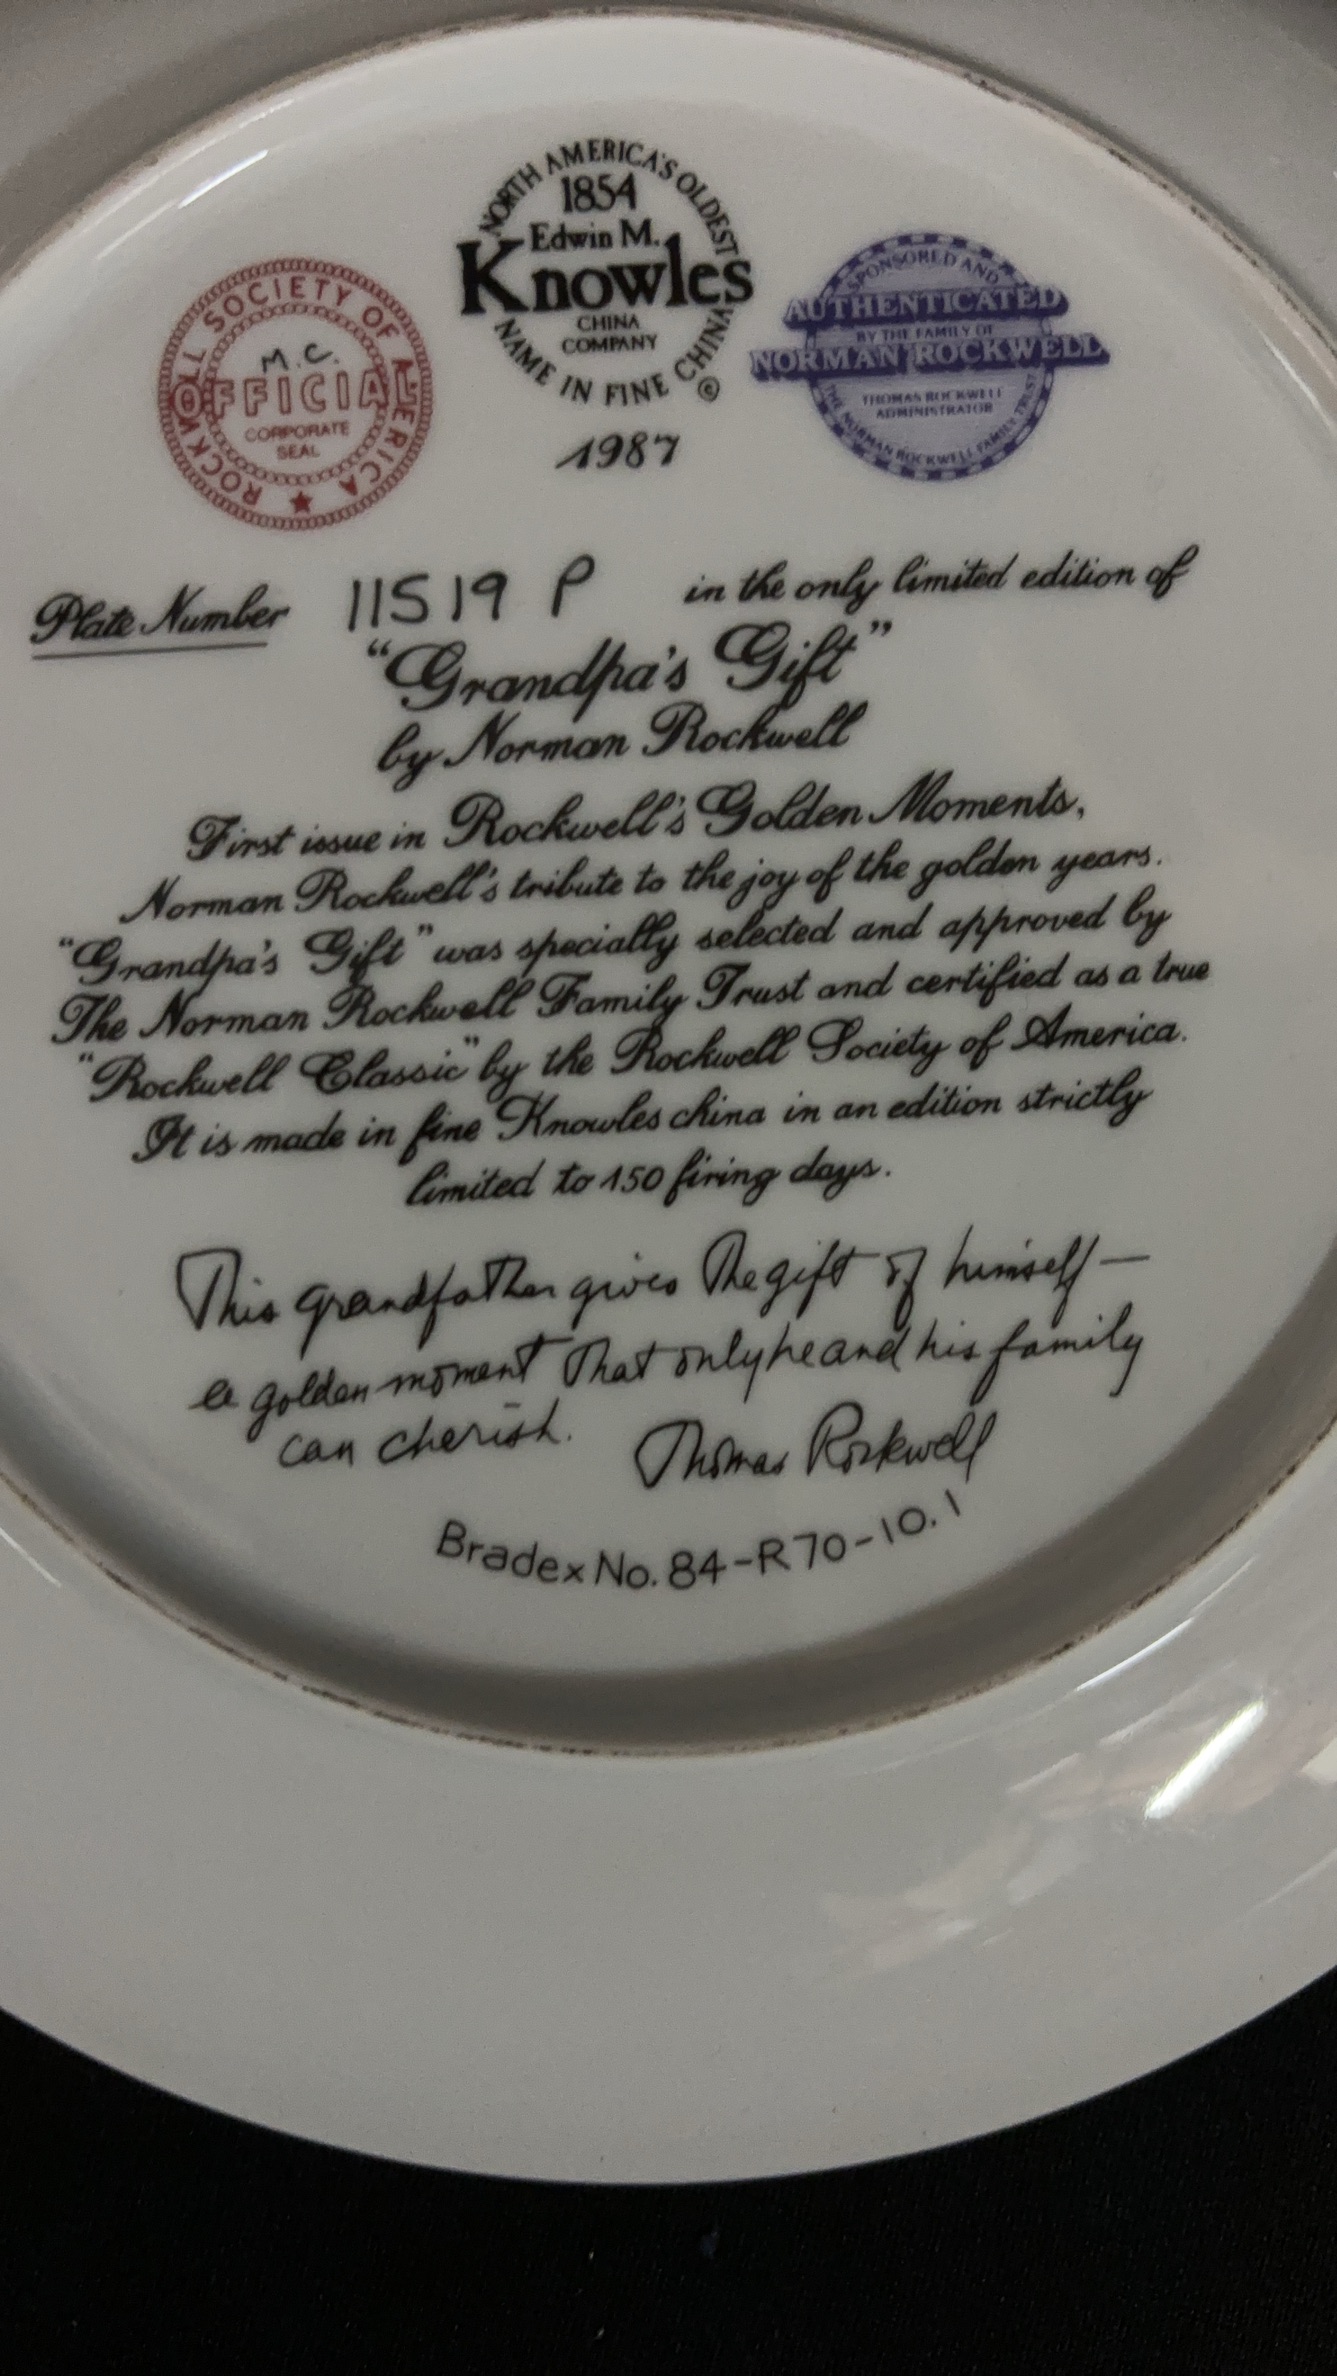 NORTH AMERICA'S OLDEST
1854
Edwin M.
Knowles
CHINA
COMPANY
NAME IN FINE CHINA
©
1987
ROCKWELL SOCIETY OF AMERICA
M.C.
OFFICIAL
CORPORATE
SEAL
SPONSORED AND
AUTHENTICATED
BY THE FAMILY OF
NORMAN ROCKWELL
THOMAS ROCKWELL
ADMINISTRATOR
THE NORMAN ROCKWELL FAMILY TRUST
Plate Number 11519 P in the only limited edition of
"Grandpa's Gift"
by Norman Rockwell
First issue in Rockwell's Golden Moments,
Norman Rockwell's tribute to the joy of the golden years.
"Grandpa's Gift" was specially selected and approved by
The Norman Rockwell Family Trust and certified as a true
"Rockwell Classic" by the Rockwell Society of America.
It is made in fine Knowles china in an edition strictly
limited to 150 firing days.
This grandfather gives the gift of himself—
a golden moment that only he and his family
can cherish. Thomas Rockwell
Bradex No. 84-R70-10.1